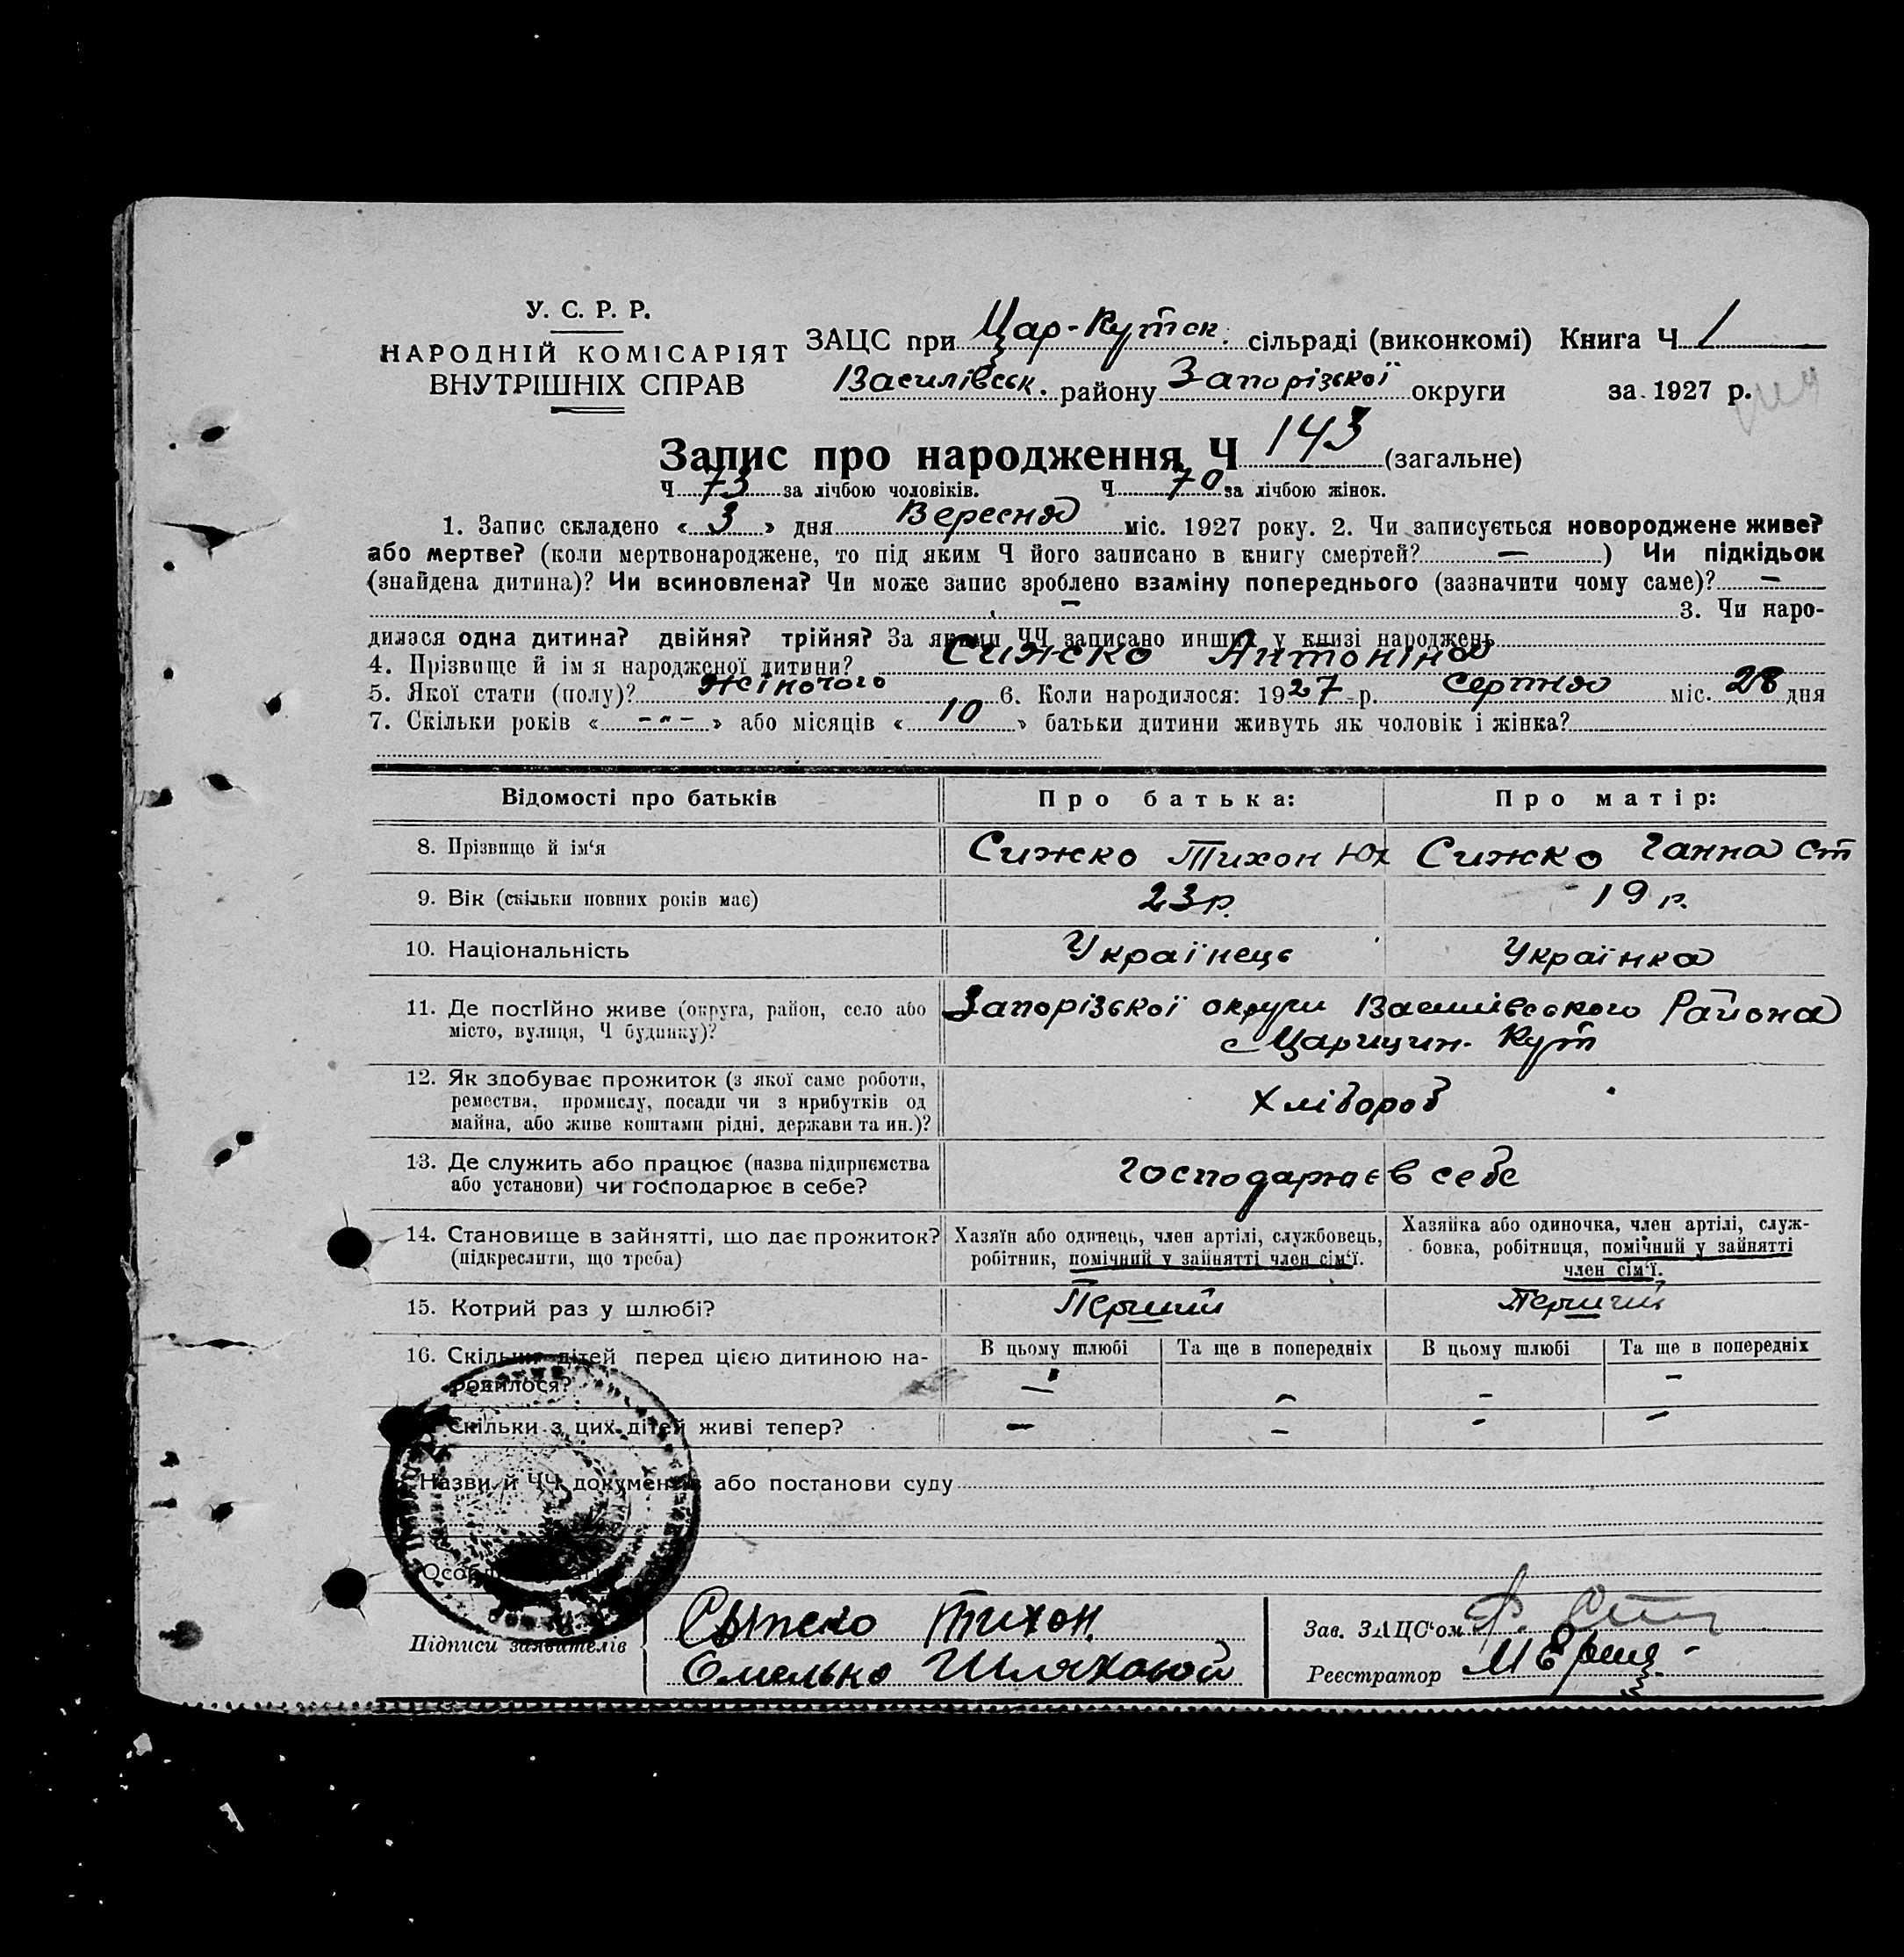 У. С. Р. Р.
НАРОДНІЙ КОМІСАРІЯТ
ВНУТРІШНІХ СПРАВ
ЗАЦС при Цар-Кутск. сільраді (виконкомі) Книга Ч 1
Василівськ. району Запорізької округи за 1927 р.
Запис про народження Ч 143 (загальне)
Ч 73 за лічбою чоловіків. Ч 70 за лічбою жінок.
1. Запис складено « 3 » дня Вересня міс. 1927 року. 2. Чи записується новороджене живе?
або мертве? (коли мертвонароджене, то під яким Ч його записано в книгу смертей? — ) Чи підкідьок
(знайдена дитина)? Чи всиновлена? Чи може запис зроблено взаміну попереднього (зазначити чому саме)? —
— 3. Чи наро-
дилася одна дитина? двійня? трійня? За якими ЧЧ записано инших у книзі народжень
4. Прізвище й ім я народженої дитини? Сижко Антоніна
5. Якої стати (полу)? жіночого 6. Коли народилося: 1927 р. серпня міс. 28 дня
7. Скільки років « -"- » або місяців « 10 » батьки дитини живуть як чоловік і жінка?
Відомості про батьків Про батька: Про матір:
8. Прізвище й ім‘я Сижко Тихон Юх Сижко Ганна Ст
9. Вік (скільки повних років має) 23р. 19 р.
10. Національність Українець Українка
11. Де постійно живе (округа, район, село або Запорізької округи Василівського Района
місто, вулиця, Ч будинку)? с Царицин. Кут
12. Як здобуває прожиток (з якої саме роботи,
ремества, промислу, посади чи з прибутків од Хлібороб
майна, або живе коштами рідні, держави та ин.)?
13. Де служить або працює (назва підприємства господарює в себе
або установи) чи господарює в себе?
14. Становище в зайнятті, що дає прожиток? Хазяїн або одинець, член артілі, службовець, Хазяйка або одиночка, член артілі, служ-
(підкреслити, що треба) робітник, помічний у зайнятті член сім‘ї. бовка, робітниця, помічний у зайнятті
член сім‘ї.
15. Котрий раз у шлюбі? Перший Перший
16. Скільки дітей перед цією дитиною на- В цьому шлюбі Та ще в попередніх В цьому шлюбі Та ще в попередніх
родилося? — - - -
Скільки з цих дітей живі тепер? — - - -
Назви й ЧЧ документів або постанови суду
Підписи заявителів Сыжко Тихон. Зав. ЗАЦС‘ом
Омелько Шляховой Реєстратор